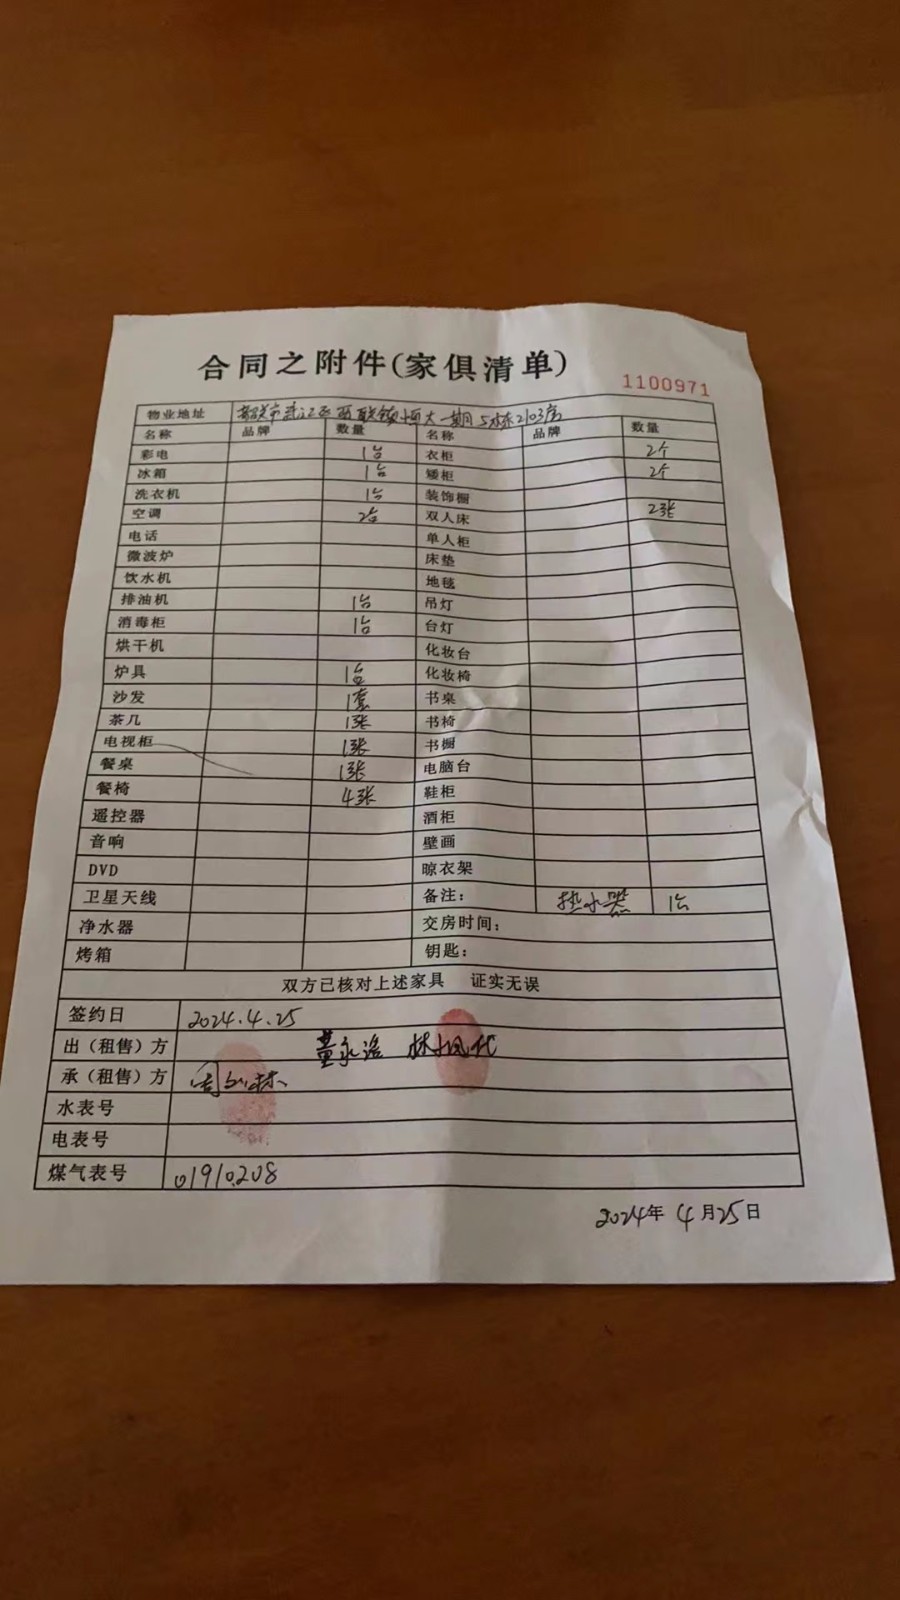 合同之附件(家俱清单)
1100971
物业地址 韶关市武江区西联镇恒大一期5栋2103房
名称 品牌 数量 名称 品牌 数量
彩电 1台 衣柜 2个
冰箱 1台 矮柜 2个
洗衣机 1台 装饰橱
空调 2台 双人床 2张
电话 单人柜
微波炉 床垫
饮水机 地毯
排油机 1台 吊灯
消毒柜 1台 台灯
烘干机 化妆台
炉具 1台 化妆椅
沙发 1套 书桌
茶几 1张 书椅
电视柜 1张 书橱
餐桌 1张 电脑台
餐椅 4张 鞋柜
遥控器 酒柜
音响 壁画
DVD 晾衣架
卫星天线 备注: 热水器 1台
净水器 交房时间:
烤箱 钥匙:
双方已核对上述家具 证实无误
签约日 2024.4.25
出(租售)方 董永
承(租售)方
水表号
电表号
煤气表号 01910208
2024年4月25日